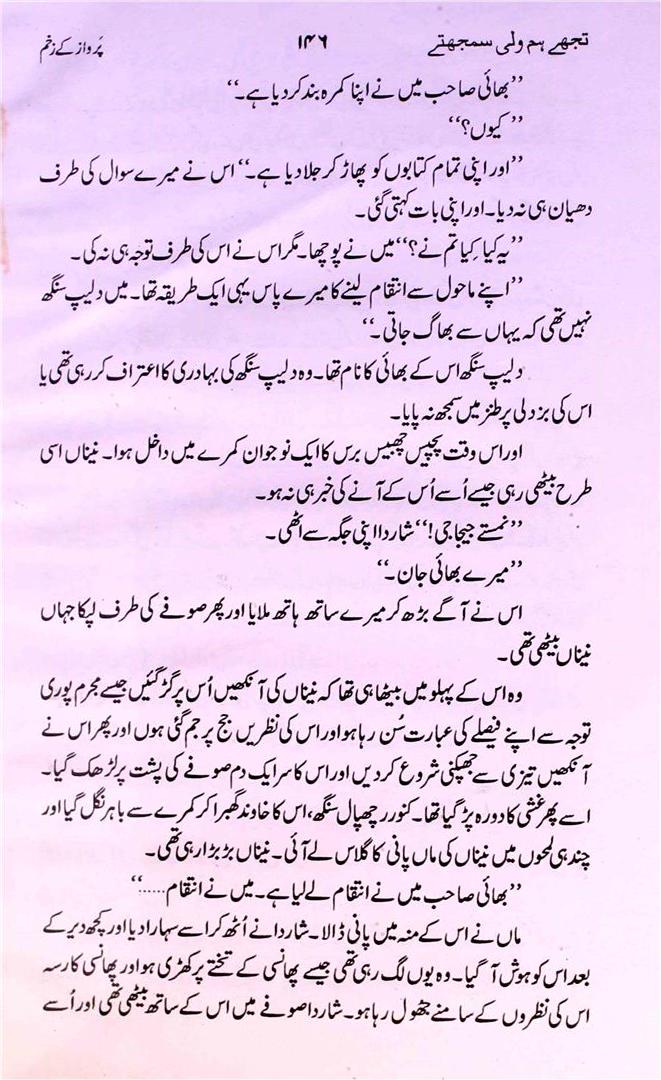 تجھے ہم ولی سمجھتے ۱۴۶ پرواز کے زخم
’’بھائی صاحب میں نے اپنا کمرہ بند کر دیا ہے۔‘‘
’’کیوں؟‘‘
’’اور اپنی تمام کتابوں کو پھاڑ کر جلا دیا ہے۔‘‘ اس نے میرے سوال کی طرف
دھیان ہی نہ دیا۔ اور اپنی بات کہتی گئی۔
’’یہ کیا کِیا تم نے؟‘‘ میں نے پوچھا۔ مگر اس نے اس کی طرف توجہ ہی نہ کی۔
’’اپنے ماحول سے انتقام لینے کا میرے پاس یہی ایک طریقہ تھا۔ میں دلیپ سنگھ
نہیں تھی کہ یہاں سے بھاگ جاتی۔‘‘
دلیپ سنگھ اس کے بھائی کا نام تھا۔ وہ دلیپ سنگھ کی بہادری کا اعتراف کر رہی تھی یا
اس کی بزدلی پر طنز میں سمجھ نہ پایا۔
اور اس وقت پچیس چھبیس برس کا ایک نوجوان کمرے میں داخل ہوا۔ نیناں اسی
طرح بیٹھی رہی جیسے اُسے اُس کے آنے کی خبر ہی نہ ہو۔
’’نمستے جیجا جی!‘‘ شاردا اپنی جگہ سے اٹھی۔
’’میرے بھائی جان۔‘‘
اس نے آگے بڑھ کر میرے ساتھ ہاتھ ملایا اور پھر صوفے کی طرف لپکا جہاں
نیناں بیٹھی تھی۔
وہ اس کے پہلو میں بیٹھا ہی تھا کہ نیناں کی آنکھیں اُس پر گڑ گئیں جیسے مجرم پوری
توجہ سے اپنے فیصلے کی عبارت سُن رہا ہو اور اس کی نظریں جج پر جم گئی ہوں اور پھر اس نے
آنکھیں تیزی سے جھپکنی شروع کر دیں اور اس کا سر ایک دم صوفے کی پشت پر لڑھک گیا۔
اسے پھر غشی کا دورہ پڑ گیا تھا۔ کنور رچھپال سنگھ، اس کا خاوند گھبرا کر کمرے سے باہر نکل گیا اور
چند ہی لمحوں میں نیناں کی ماں پانی کا گلاس لے آئی۔ نیناں بڑبڑا رہی تھی۔
’’بھائی صاحب میں نے انتقام لے لیا ہے۔ میں نے انتقام......‘‘
ماں نے اس کے منہ میں پانی ڈالا۔ شاردا نے اُٹھ کر اسے سہارا دیا اور کچھ دیر کے
بعد اس کو ہوش آ گیا۔ وہ یوں لگ رہی تھی جیسے پھانسی کے تختے پر کھڑی ہو اور پھانسی کا رسہ
اس کی نظروں کے سامنے جھول رہا ہو۔ شاردا صوفے میں اس کے ساتھ بیٹھی تھی اور اُسے